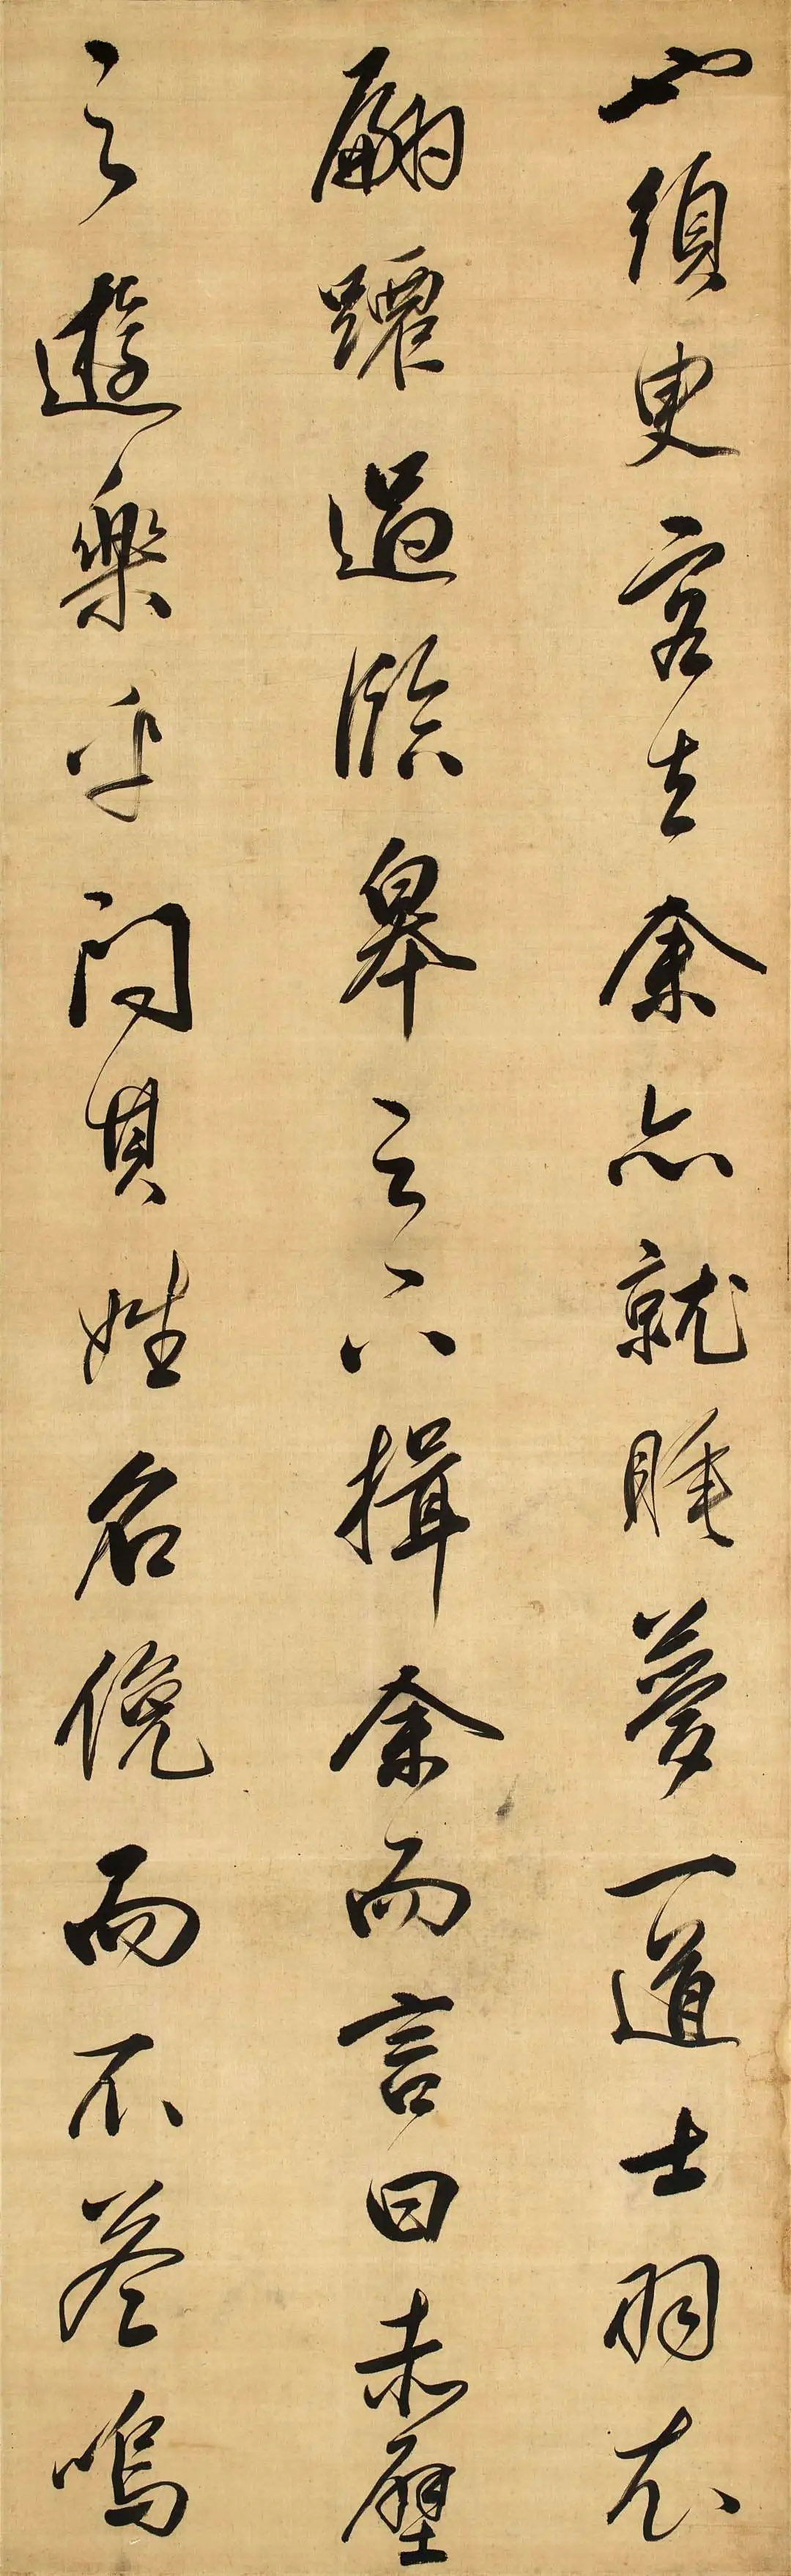 也須臾客去余亦就睡夢一道士羽衣
翩躚過臨皋之下揖余而言曰赤壁
之遊樂乎問其姓名俛而不答嗚